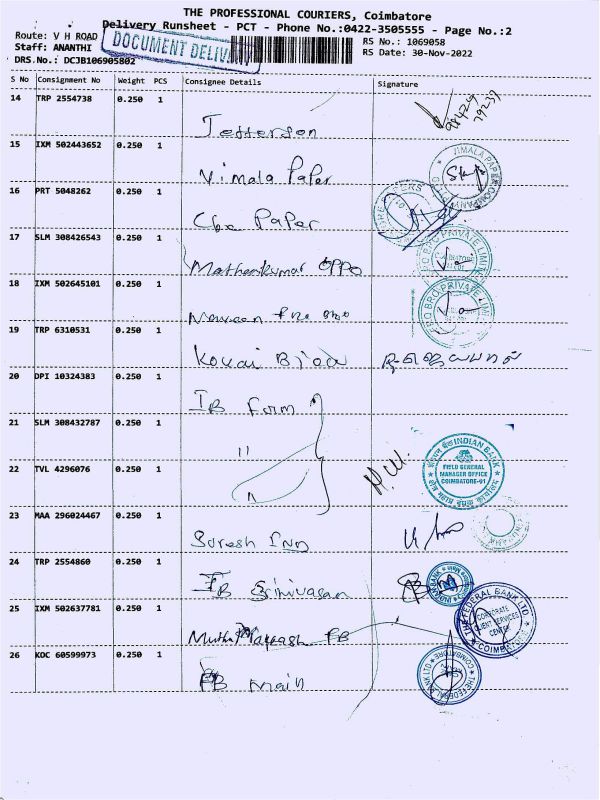 THE PROFESSIONAL COURIERS, Coimbatore
Delivery Runsheet - PCT - Phone No.:0422-3505555 - Page No.:2
Route: V H ROAD
Staff: ANANTHI
DRS.No.: DCJB106905802
DOCUMENT DELIV
RS No.: 1069058
RS Date: 30-Nov-2022
S No Consignment No Weight PCS Consignee Details Signature
14 TRP 2554738 0.250 1
Jefferson
15 IXM 502443652 0.250 1
Vimala Paper
VIMALA PAPER COMPANY
16 PRT 5048262 0.250 1
Cbe Paper
17 SLM 308426543 0.250 1
Mathankumar OPPO
BRO PRIVATE LIMITED
18 IXM 502645101 0.250 1
Naveen
BRO PRIVATE LIMI
19 TRP 6310531 0.250 1
Kovai
20 DPI 10324383 0.250 1
IB Form
21 SLM 308432787 0.250 1
"
INDIAN BANK
FIELD GENERAL
MANAGER OFFICE
COIMBATORE-01
22 TVL 4296076 0.250 1
"
23 MAA 296024467 0.250 1
Suresh IND
24 TRP 2554860 0.250 1
IB Srinivasan
25 IXM 502637781 0.250 1
Muthu Prakash FB
THE FEDERAL BANK LTD.
CORPORATE
CLIENT SERVICES
CENTER
COIMBATORE
26 KOC 60599973 0.250 1
FB Main
THE FEDERAL BANK LTD
COIMBATORE